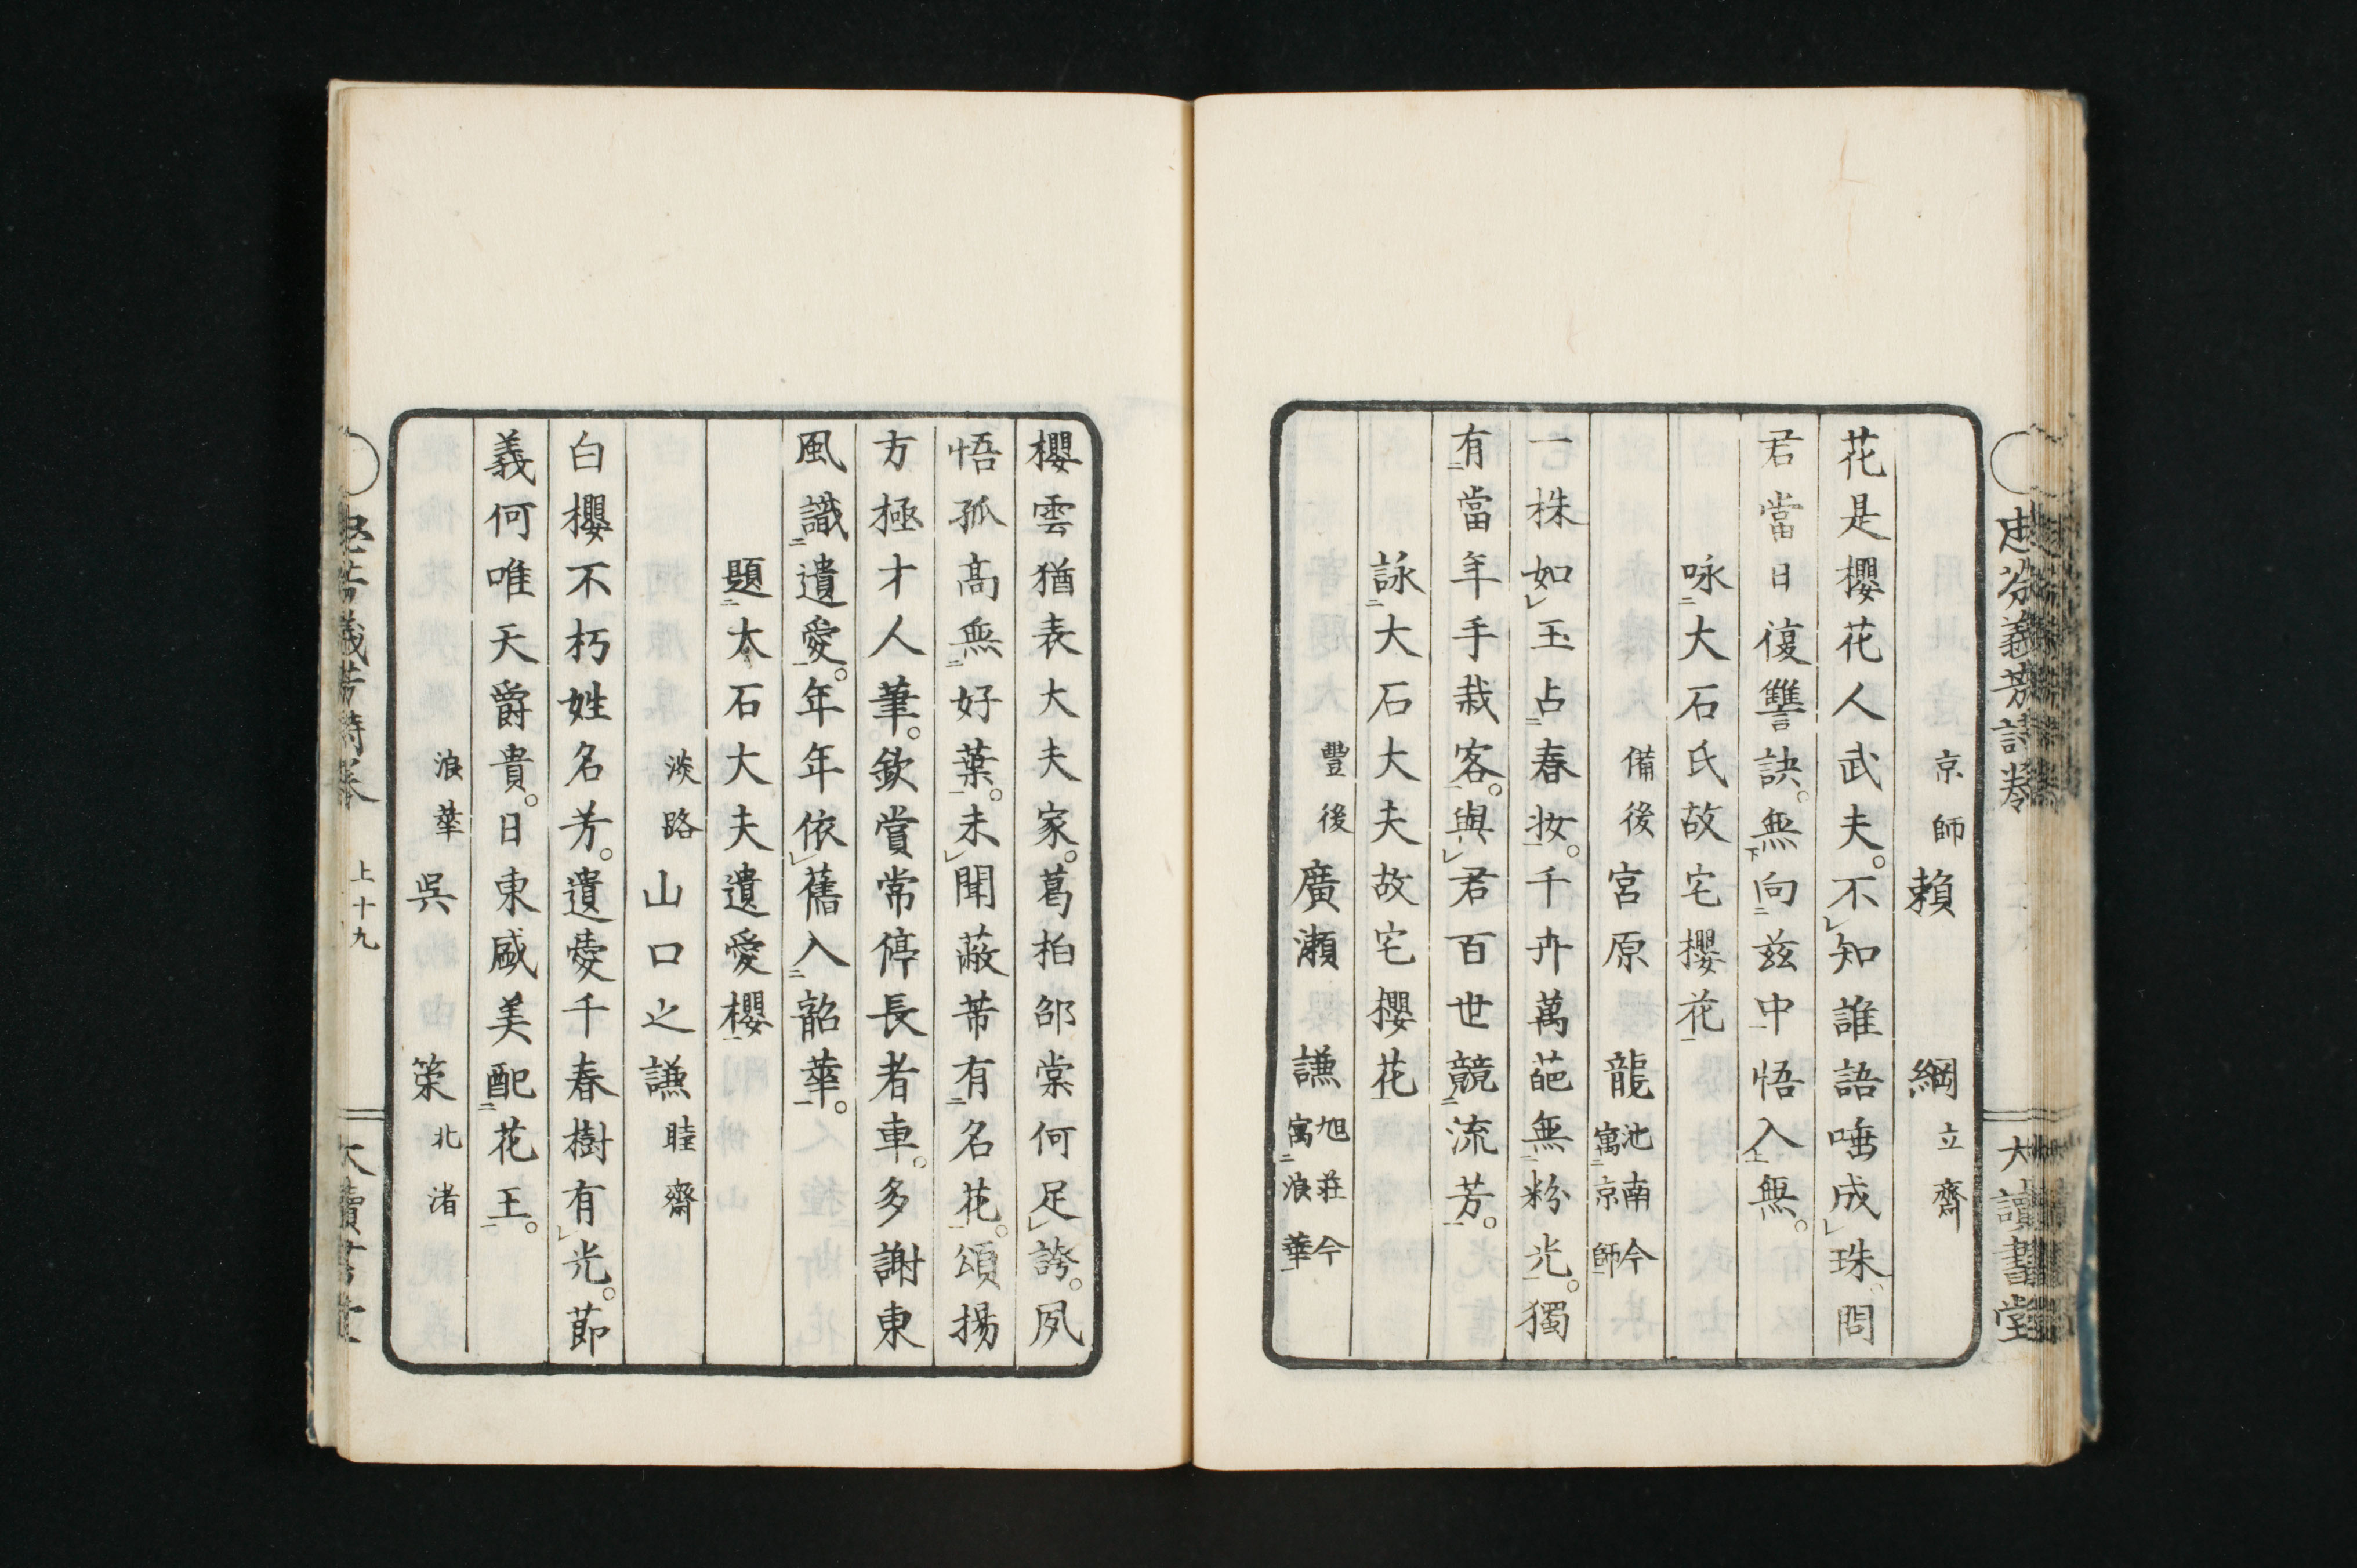 京師 賴 綱 立齋
花是櫻花人武夫。不知誰語唾成珠。問
君當日復讐訣。無向茲中悟入無。
咏大石氏故宅櫻花
備後 宮原龍 池南今寓京師
一株如玉占春妝。千卉萬葩無粉光。獨
有當年手栽客。與君百世競流芳。
詠大石大夫故宅櫻花
豐後 廣瀨謙 旭莊今寓浪華
櫻雲猶表大夫家。葛柏邵棠何足誇。夙
悟孤高無好葉。未聞蔽芾有名花。頌揚
方極才人筆。欽賞常停長者車。多謝東
風識遺愛。年年依舊入韶華。
題大石大夫遺愛櫻
淡路 山口之謙 睦齋
白櫻不朽姓名芳。遺愛千春樹有光。節
義何唯天爵貴。日東盛美配花王。
浪華 吳 策 北渚
忠芬義芳詩卷
大讀書堂
忠芬義芳詩卷 上十九
大讀書堂